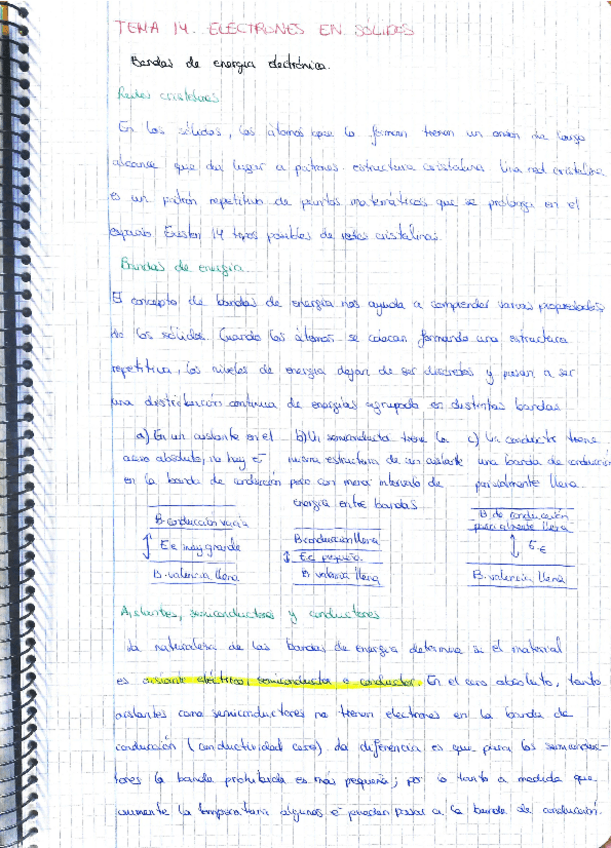 TEMA 14. ELECTRONES EN SÓLIDOS
Bandas de energía electrónica.
Redes cristalinas
En los sólidos, los átomos que lo forman tienen un orden de largo
alcance que da lugar a patrones estructura cristalina. Una red cristalina
es un patrón repetitivo de puntos matemáticos que se prolonga en el
espacio. Existen 14 tipos posibles de redes cristalinas.
Bandas de energía
El concepto de bandas de energía nos ayuda a comprender varias propiedades
de los sólidos. Cuando los átomos se colocan formando una estructura
repetitiva, los niveles de energía dejan de ser discretos y pasan a ser
una distribución continua de energías agrupada en distintas bandas
a) En un aislante en el
cero absoluto, no hay e-
en la banda de conducción
b) Un semiconductor tiene la
misma estructura de un aislante
pero con menor intervalo de
energía entre bandas
c) Un conductor tiene
una banda de conducción
parcialmente llena.
B. conducción vacía
E muy grande
B. valencia llena
B. conducción llena
E pequeño
B. valencia llena
B de conducción
parcialmente llena
E
B. valencia llena
Aislantes, semiconductores y conductores
La naturaleza de las bandas de energía determina si el material
es aislante eléctrico, semiconductor o conductor. En el cero absoluto, tanto
aislantes como semiconductores no tienen electrones en la banda de
conducción (conductividad cero). La diferencia es que para los semiconduc-
tores la banda prohibida es más pequeña; por lo tanto a medida que
aumente la temperatura algunos e- puedan pasar a la banda de conducción.